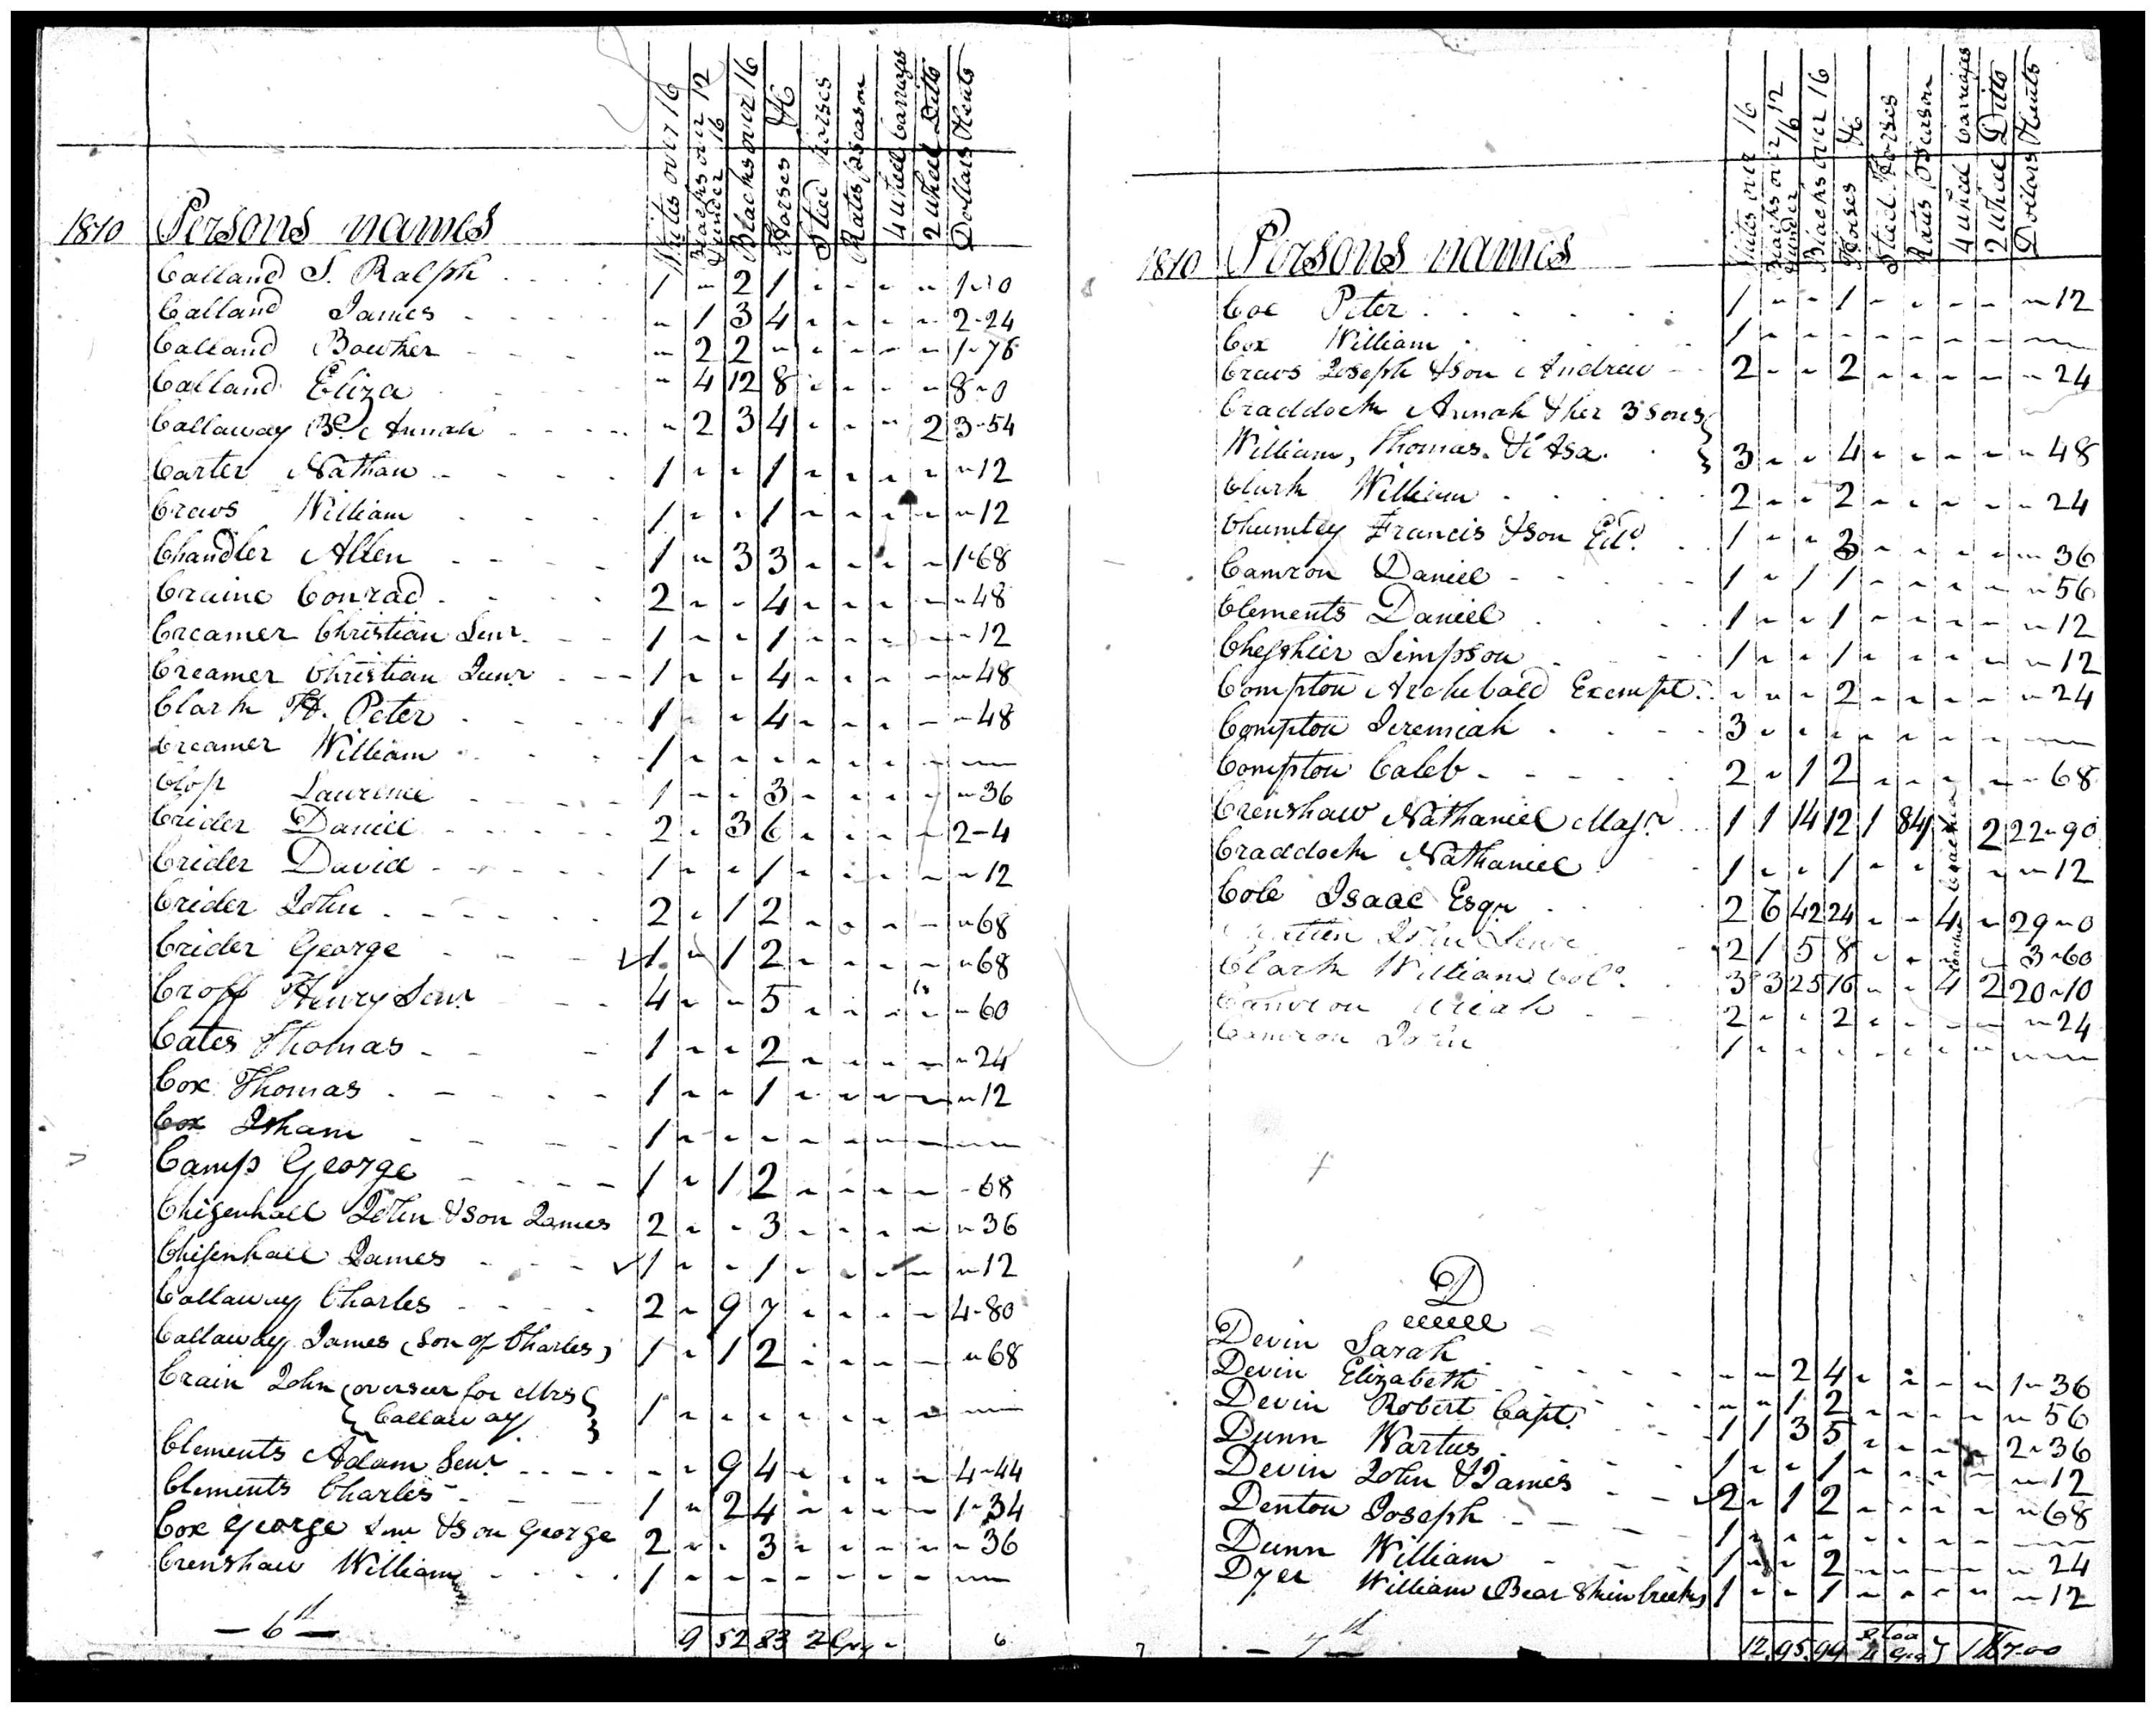 Whites over 16
Blacks over 12 & under 16
Blacks over 16
Horses &c
Stud horses
Rates pr Season
4 wheel Carriages
2 wheel Ditto
Dollars & Cents
1810 Persons names
Calland S. Ralph 1 - 2 1 - - - -
Calland James - 1 3 4 - - - - 2-24
Calland Bowker - 2 2 - - - - - 1-76
Calland Eliza - 4 12 8 - - - - 8-0
Callaway Annah - 2 3 4 - - - 2 3-54
Carter Nathan 1 - - 1 - - - - -12
Craws William 1 - - 1 - - - - -12
Chandler Allen 1 - 3 3 - - - - 1-68
Craine Conrad 2 - - 4 - - - - -48
Creamer Christian Senr 1 - - 1 - - - - -12
Creamer Christian Junr 1 - - 4 - - - - -48
Clark H. Peter 1 - - 4 - - - - -48
Creamer William 1 - - - - - - - -
Clop Laurence 1 - - 3 - - - - -36
Crider Daniel 2 - 3 6 - - - - 2-4
Crider David 1 - - 1 - - - - -12
Crider John 2 - 1 2 - - - - -68
Crider George ✓ 1 - 1 2 - - - - -68
Croff Henry Senr 4 - - 5 - - - - -60
Cates Thomas 1 - - 2 - - - - -24
Cox Thomas 1 - - 1 - - - - -12
Cox Isham 1 - - - - - - - -
Camp George 1 - 1 2 - - - - -68
Chisenhall John & son James 2 - - 3 - - - - -36
Chisenhall James ✓ 1 - - 1 - - - - -12
Callaway Charles 2 - 9 7 - - - - 4-80
Callaway James (Son of Charles) 1 - 1 2 - - - - -68
Crain John (overseer for Mrs
Callaway 1 - - - - - - - -
Clements Adam Senr - - 9 4 - - - - 4-44
Clements Charles 1 - 2 4 - - - - 1-34
Cox George Senr & son George 2 - - 3 - - - - -36
Crenshaw William 1 - - - - - - - -
- 6th -
9 52 83 2 6
Whites over 16
Blacks over 12 & under 16
Blacks over 16
Horses &c
Stud Horses
Rates pr Season
4 wheel Carriages
2 wheel Ditto
Dollars & Cents
1810 Persons names
Cox Peter 1 - - 1 - - - - -12
Cox William 1 - - - - - - - -
Craws Joseph & son Andrew 2 - - 2 - - - - -24
Craddock Annah & her 3 sons
William, Thomas & Asa 3 - - 4 - - - - -48
Clark William 2 - - 2 - - - - -24
Chumley Francis & son Edd. 1 - - 3 - - - - -36
Camron Daniel 1 - 1 1 - - - - -56
Clements Daniel 1 - - 1 - - - - -12
Cheshier Simpson 1 - - 1 - - - - -12
Compton Archibald Exempt - - - 2 - - - - -24
Compton Jeremiah 3 - - - - - - - -
Compton Caleb 2 - 1 2 - - - - -68
Crenshaw Nathaniel Majr. 1 1 14 12 1 84 2 22-90
Craddock Nathaniel 1 - - 1 - - - -12
Cole Isaac Esqr 2 6 42 24 - - 4 - 29-0
John Senr 2 1 5 8 - - - - 3-60
Clark William Colo. 3 3 25 16 - - 4 2 20-10
Camron Uriah 2 - - 2 - - - - -24
Camron John 1 - - - - - - - -
D
Devin Sarah - - 2 4 - - - - 1-36
Devin Elizabeth - - 1 2 - - - - -56
Devin Robert Capt. 1 1 3 5 - - - - 2-36
Dunn Wartus 1 - - 1 - - - - -12
Devin John & James ✓ 2 - 1 2 - - - - -68
Denton Joseph 1 - - - - - - - -
Dunn William 1 - - 2 - - - - -24
Dyer William Bear Skin Creek 1 - - 1 - - - - -12
- 7th -
12 95 99